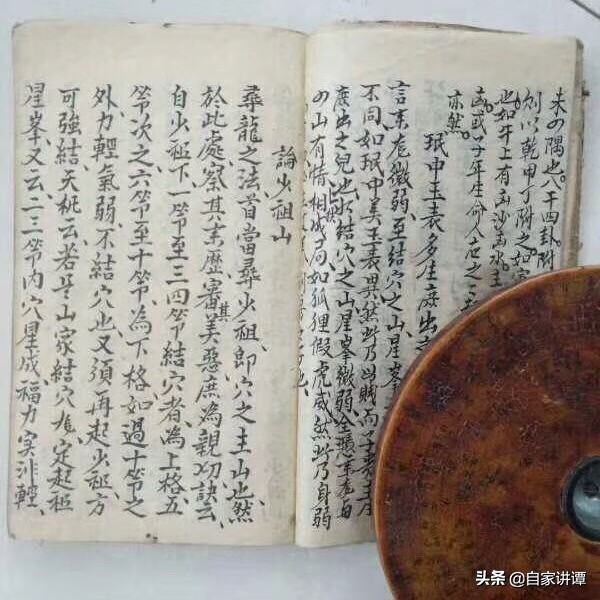 未四隅也八干四卦附
以乾甲丁附之如家
也如年上有
或子年生命人亡之二
亦然
珉中玉表多生庶出之
言来龙微弱至結穴之山星峯
不同如珉中美玉表異然此乃以賤而子表
庶出之兒也結穴之山星峯微弱全憑来龙自
山有情相成如狐狸假虎威然此乃身弱
論少祖山
尋龍之法首當尋少祖即穴之主山也然
於此處察其来歷審其美惡庶為親切訣云
自少祖下一節至三四節結穴者為上格五
節次之六節至十節為下格如過十節之
外力輕氣弱不結穴也又須再起少祖方
可強結天机云若是山家結穴龙定起祖
星峯又云二三節内穴星成福力实非輕
头条 @自家讲谭